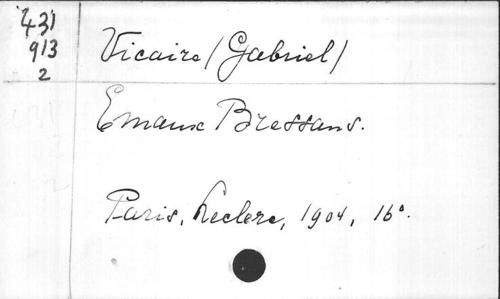 431
913
2
Vicaire (Gabriel)
Emaux Bressans.
Paris, Leclerc, 1904, 16°.